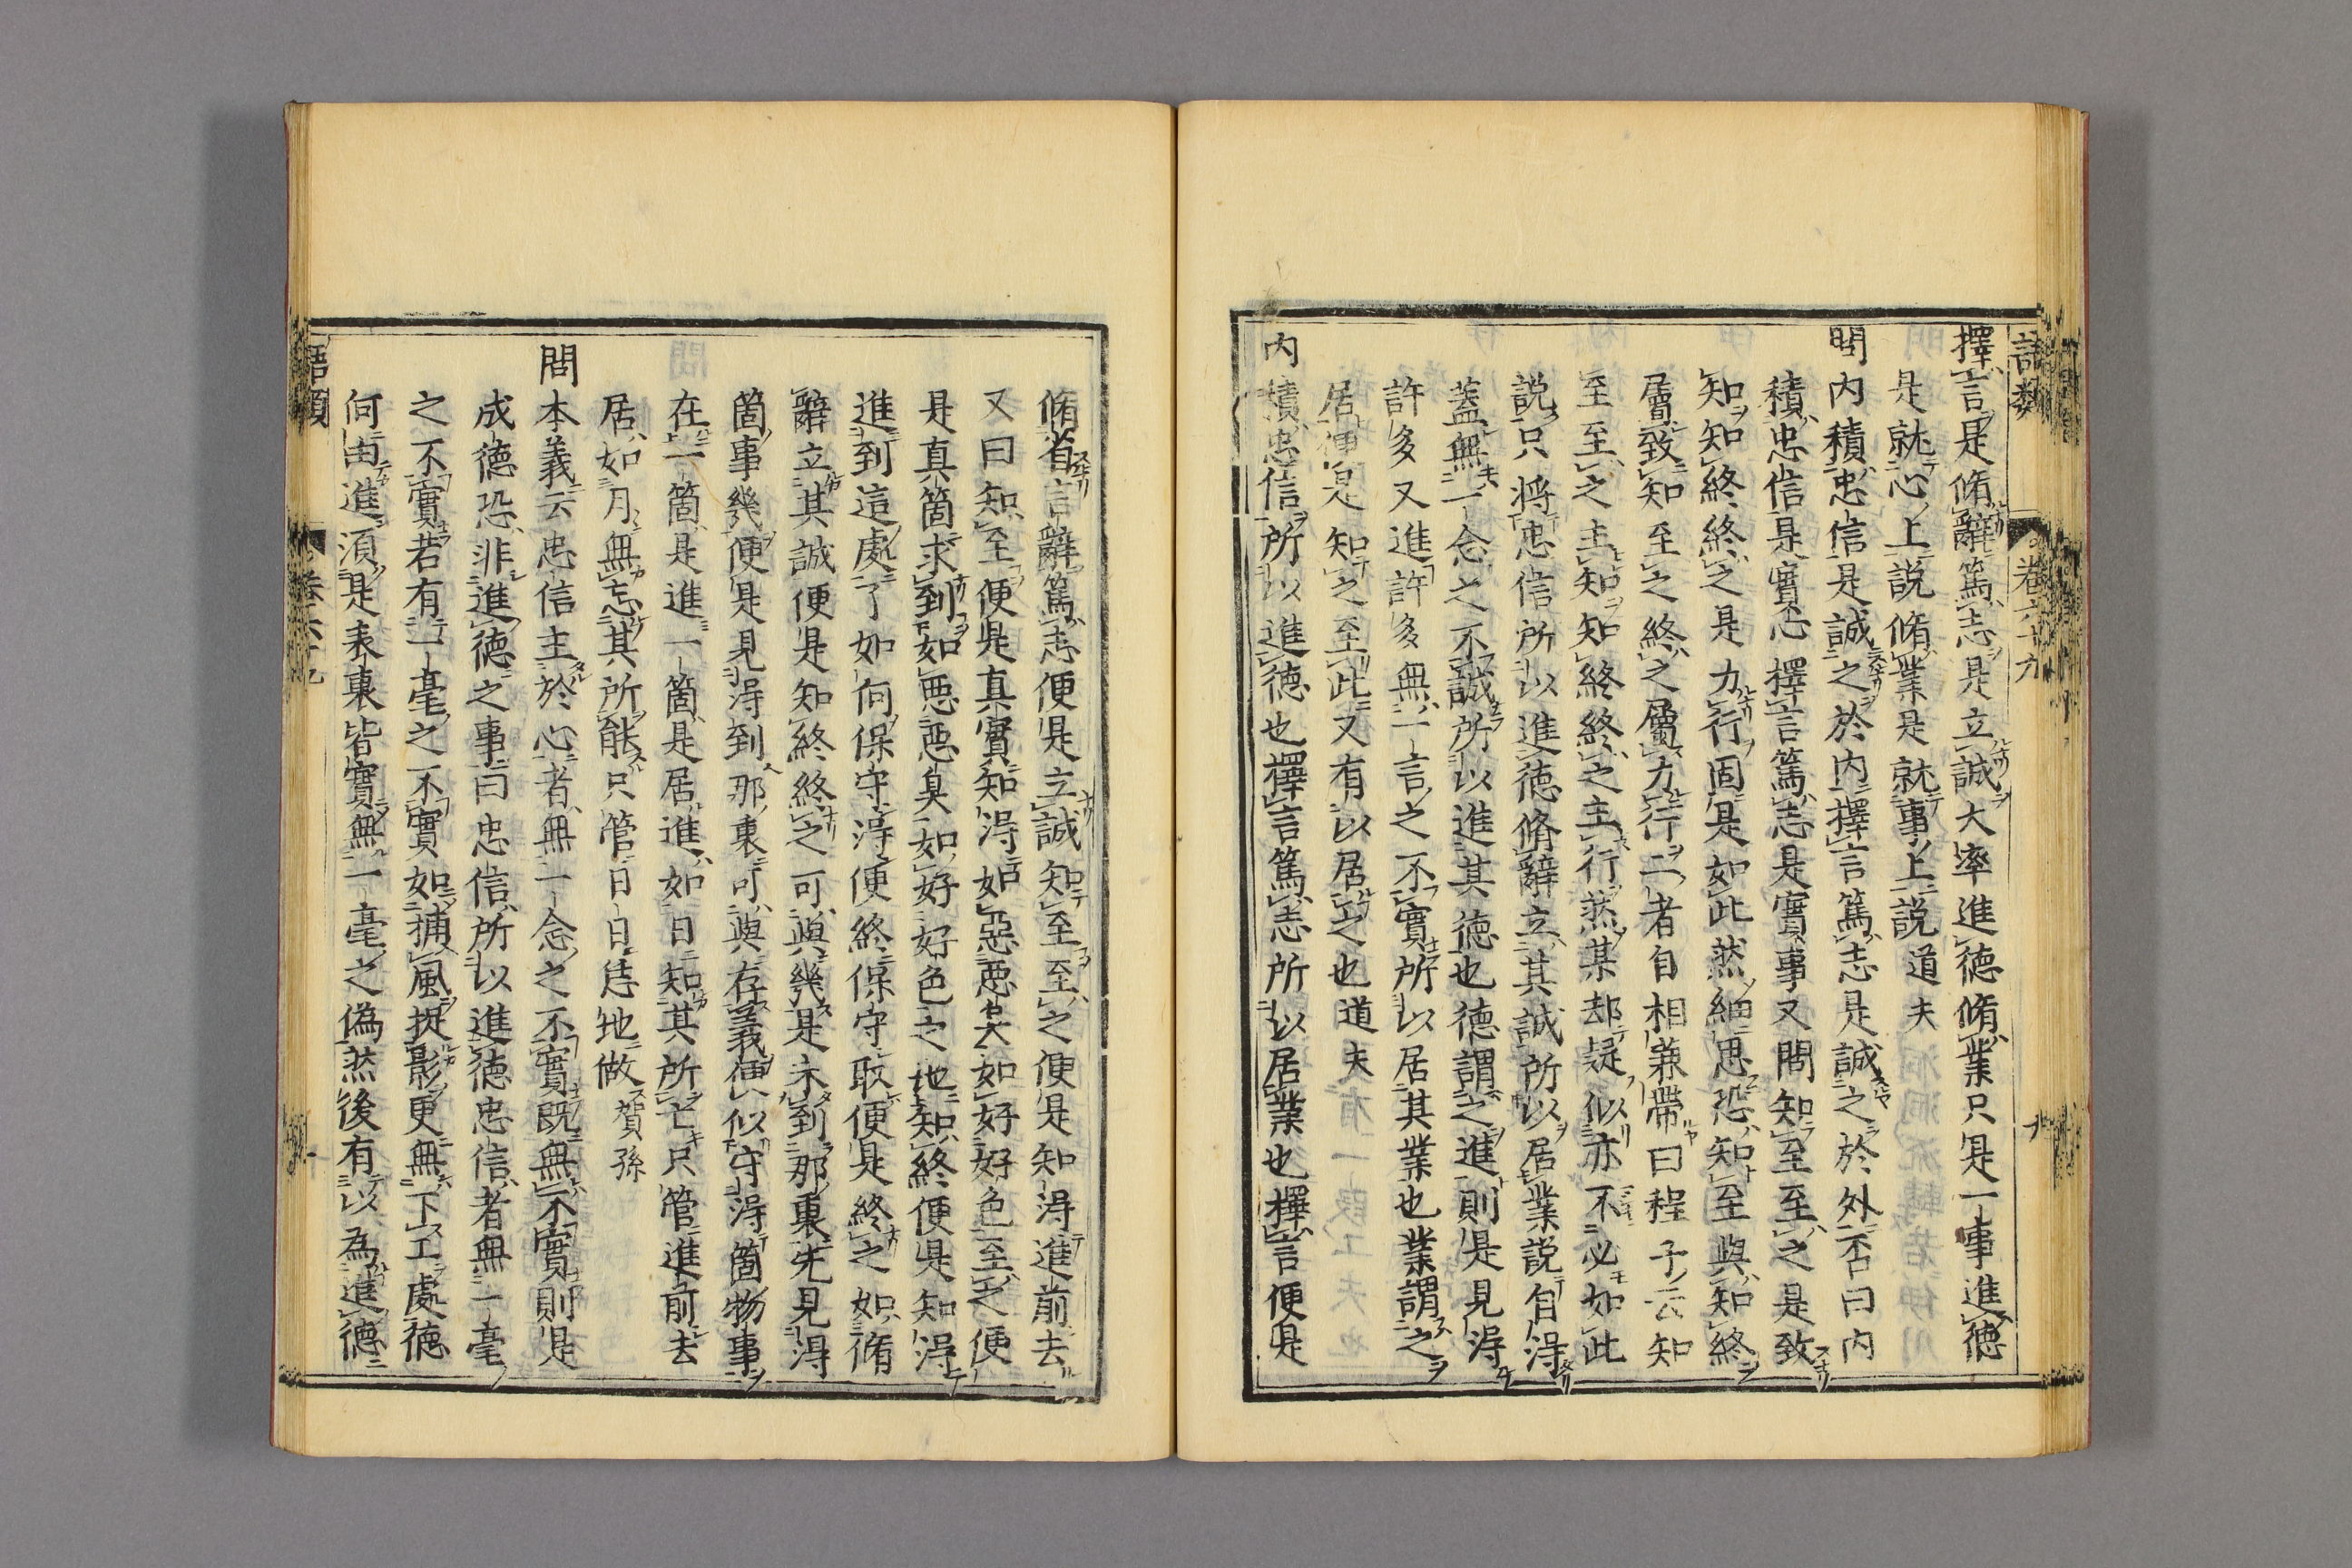 語類 卷六十九 十
擇言是脩辭篤志是立誠大率進德脩業只是一事進德
是就心上說脩業是就事上說道夫
問內積忠信是誠之於內擇言篤志是誠之於外否曰內
積忠信是實心擇言篤志是實事又問知至至之是致
知知終終之是力行固是如此然細思恐知至與知終
屬致知至之終之屬力行二者自相兼帶曰程子云知
至至之主知知終終之主行然某却疑似亦不必如此
說只將忠信所以進德脩辭立其誠所以居業說自得
蓋無一念之不誠所以進其德也德謂之進則是見得
許多又進許多無一言之不實所以居其業也業謂之
居便是知之至此又有以居之也道夫
內積忠信所以進德也擇言篤志所以居業也擇言便是
脩省言辭篤志便是立誠知至至之便是知得進前去
又曰知至便是真實知得如惡惡臭如好好色至之便
是真箇求到如惡惡臭如好好色之地知終便是知得
進到這處了如何保守得便終保守取便是終之如脩
辭立其誠便是知終終之可與幾是未到那裏先見得
箇事幾便是見得到那裏可與存義便似守得箇物事
在一箇是進一箇是居進如日知其所亡只管進前去
居如月無忘其所能只管日日恁地做賀孫
問本義云忠信主於心者無一念之不實既無不實則是
成德恐非進德之事曰忠信所以進德忠信者無一毫
之不實若有一毫之不實如捕風捉影更無下工處德
何由進須是表裏皆實無一毫之偽然後有以為進德
語類 卷六十九